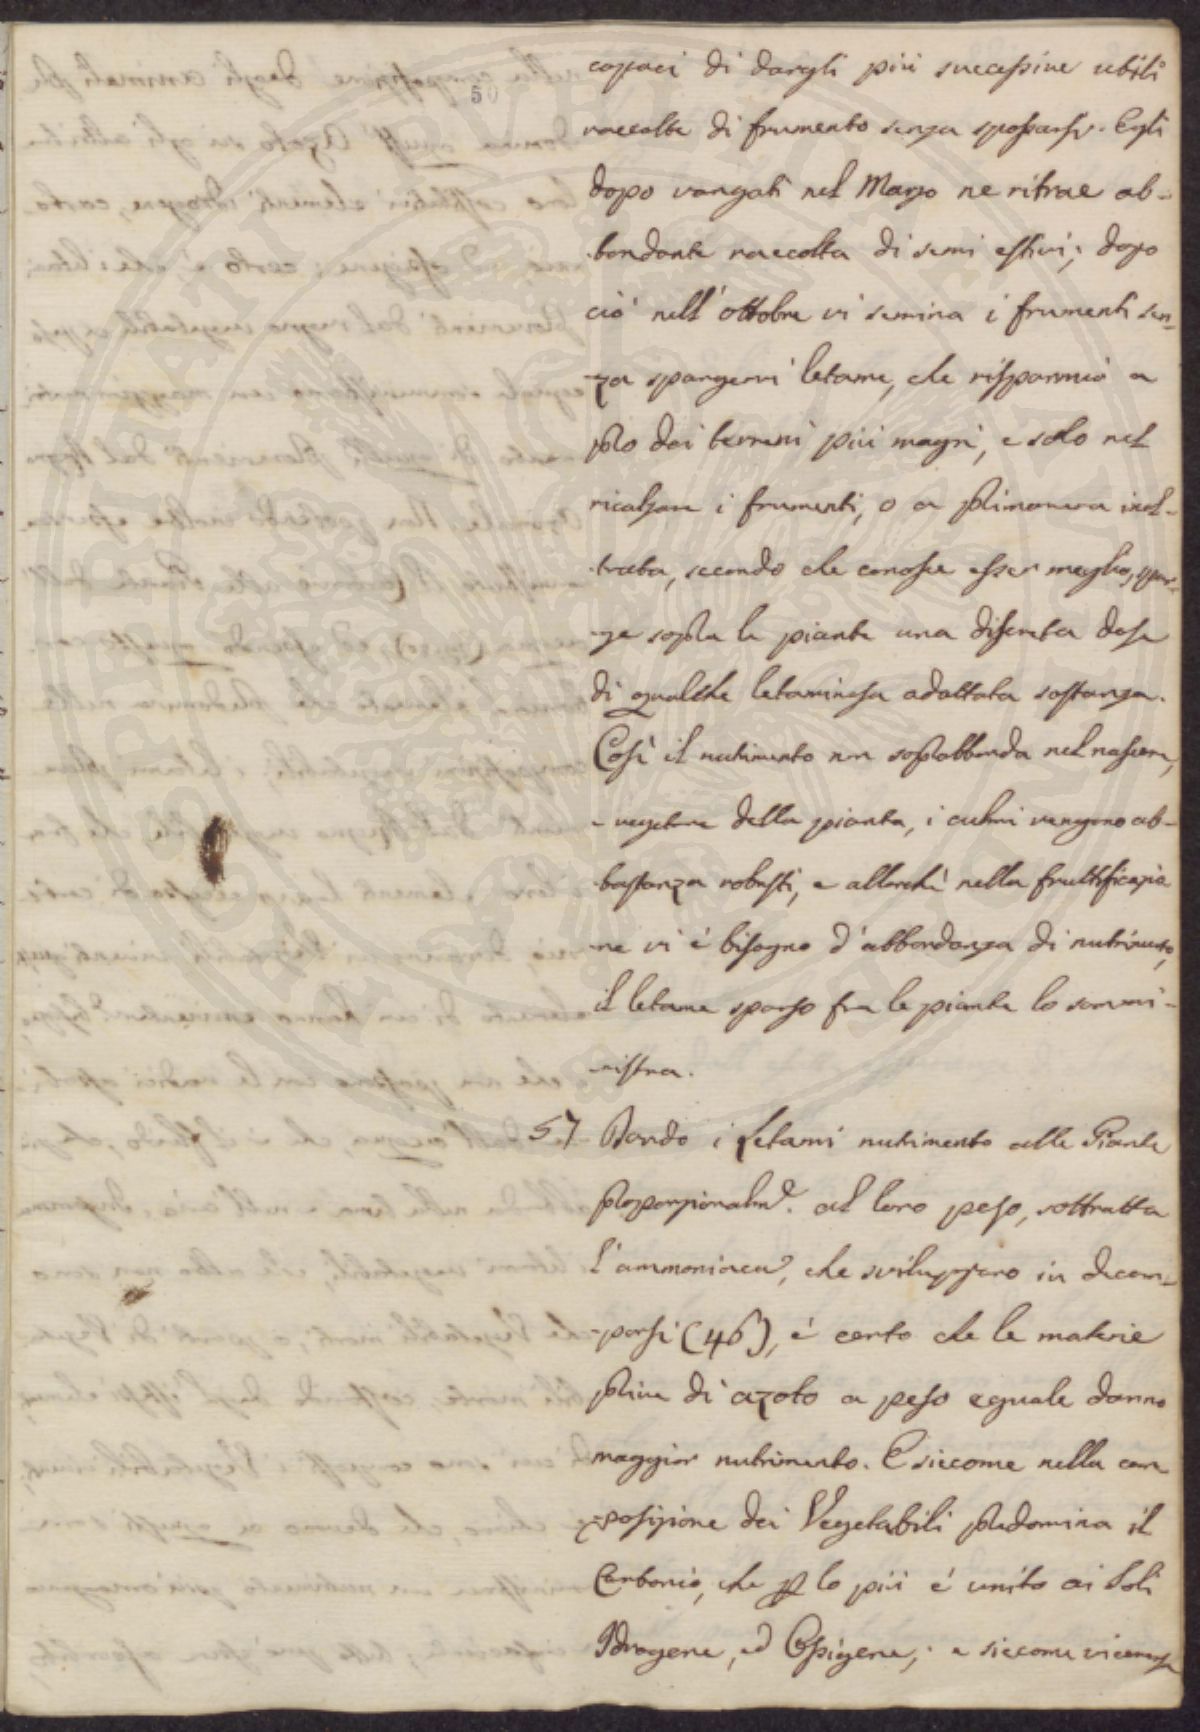 50
capaci di dargli più successive ubili
raccolte di frumento senza spossarsi. Egli
dopo vangati nel Marzo ne ritrae ab-
-bondante raccolta di semi estivi; dopo
ciò nell'ottobre vi semina i frumenti sen-
-za spargervi letame, che risparmia a
pro dei terreni più magri, e solo nel
ricalzare i frumenti, o a primavera inol-
-trata, secondo che conosce esser meglio, spar-
-ge sopra le piante una discreta dose
di qualche letaminosa adattata sostanza.
Così il nutrimento non soprabbonda nel nascere,
e vegetare della pianta, i culmi vengono ab-
-bastanza robusti, e allorchè nella fruttificazio
-ne vi è bisogno d'abbondanza di nutrimento,
il letame sparso fra le piante lo sommi-
-nistra.
57 Dando i Letami nutrimento alle Piante
proporzionalmᵉ. al loro peso, sottratta
l'ammoniaca, che sviluppano in decom-
-porsi (46), è certo che le materie
prive di azoto a peso eguale danno
maggior nutrimento. E siccome nella com
-posizione dei Vegetabili predomina il
Carbonio, che p lo più è unito ai soli
Idrogene, ed Ossigene; e siccome viceversa